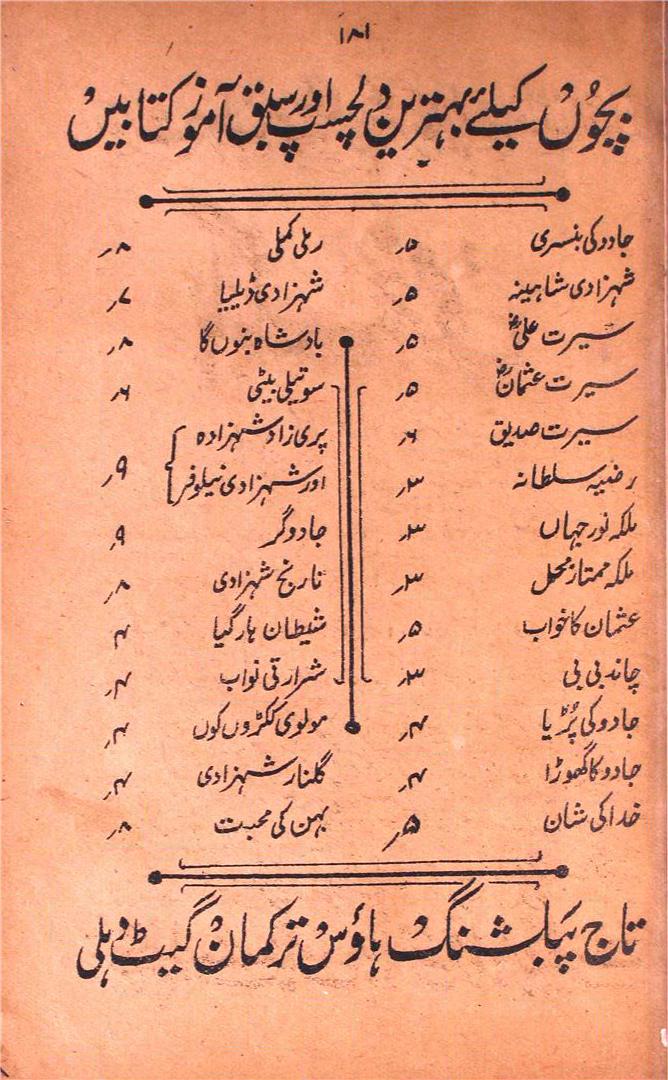 ۱۸۱
بچّوں کیلئے بہترین دلچسپ اور سبق آموز کتابیں
جادو کی بنسری ۵ر
شہزادی شاہینہ ۵ر
سیرت علیؓ ۵ر
سیرت عثمانؓ ۵ر
سیرت صدیق ۶ر
رضیہ سلطانہ ۳ر
ملکہ نورجہاں ۳ر
ملکہ ممتاز محل ۳ر
عثمان کا خواب ۵ر
چاند بی بی ۳ر
جادو کی پُڑیا ۴ر
جادو کا گھوڑا ۴ر
خدا کی شان ۵ر
رملی کملی ۸ر
شہزادی ڈیلیا ۷ر
بادشاہ بنوں گا ۸ر
سوتیلی بیٹی ۶ر
پری زاد شہزادہ
اور شہزادی نیلوفر ۹ر
جادوگر ۹ر
نارنج شہزادی ۸ر
شیطان ہار گیا ۴
شرارتی نواب ۴ر
مولوی ککڑوں کوں ۴ر
گلنار شہزادی ۴ر
بہن کی محبت ۸ر
تاج پبلشنگ ہاؤس ترکمان گیٹ دہلی